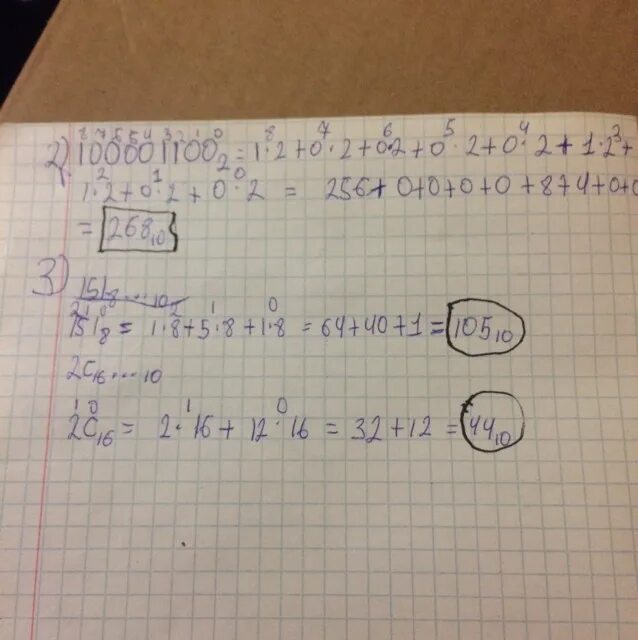 2) 100001100₂ = 1·2⁸+0·2⁷+0·2⁶+0·2⁵+0·2⁴+1·2³+
1·2²+0·2¹+0·2⁰ = 256+0+0+0+0+8+4+0+0
= 268₁₀
3) 151₈...10
151₈ = 1·8²+5·8¹+1·8⁰ = 64+40+1 = 105₁₀
2C₁₆...10
2C₁₆ = 2·16¹+12·16⁰ = 32+12 = 44₁₀